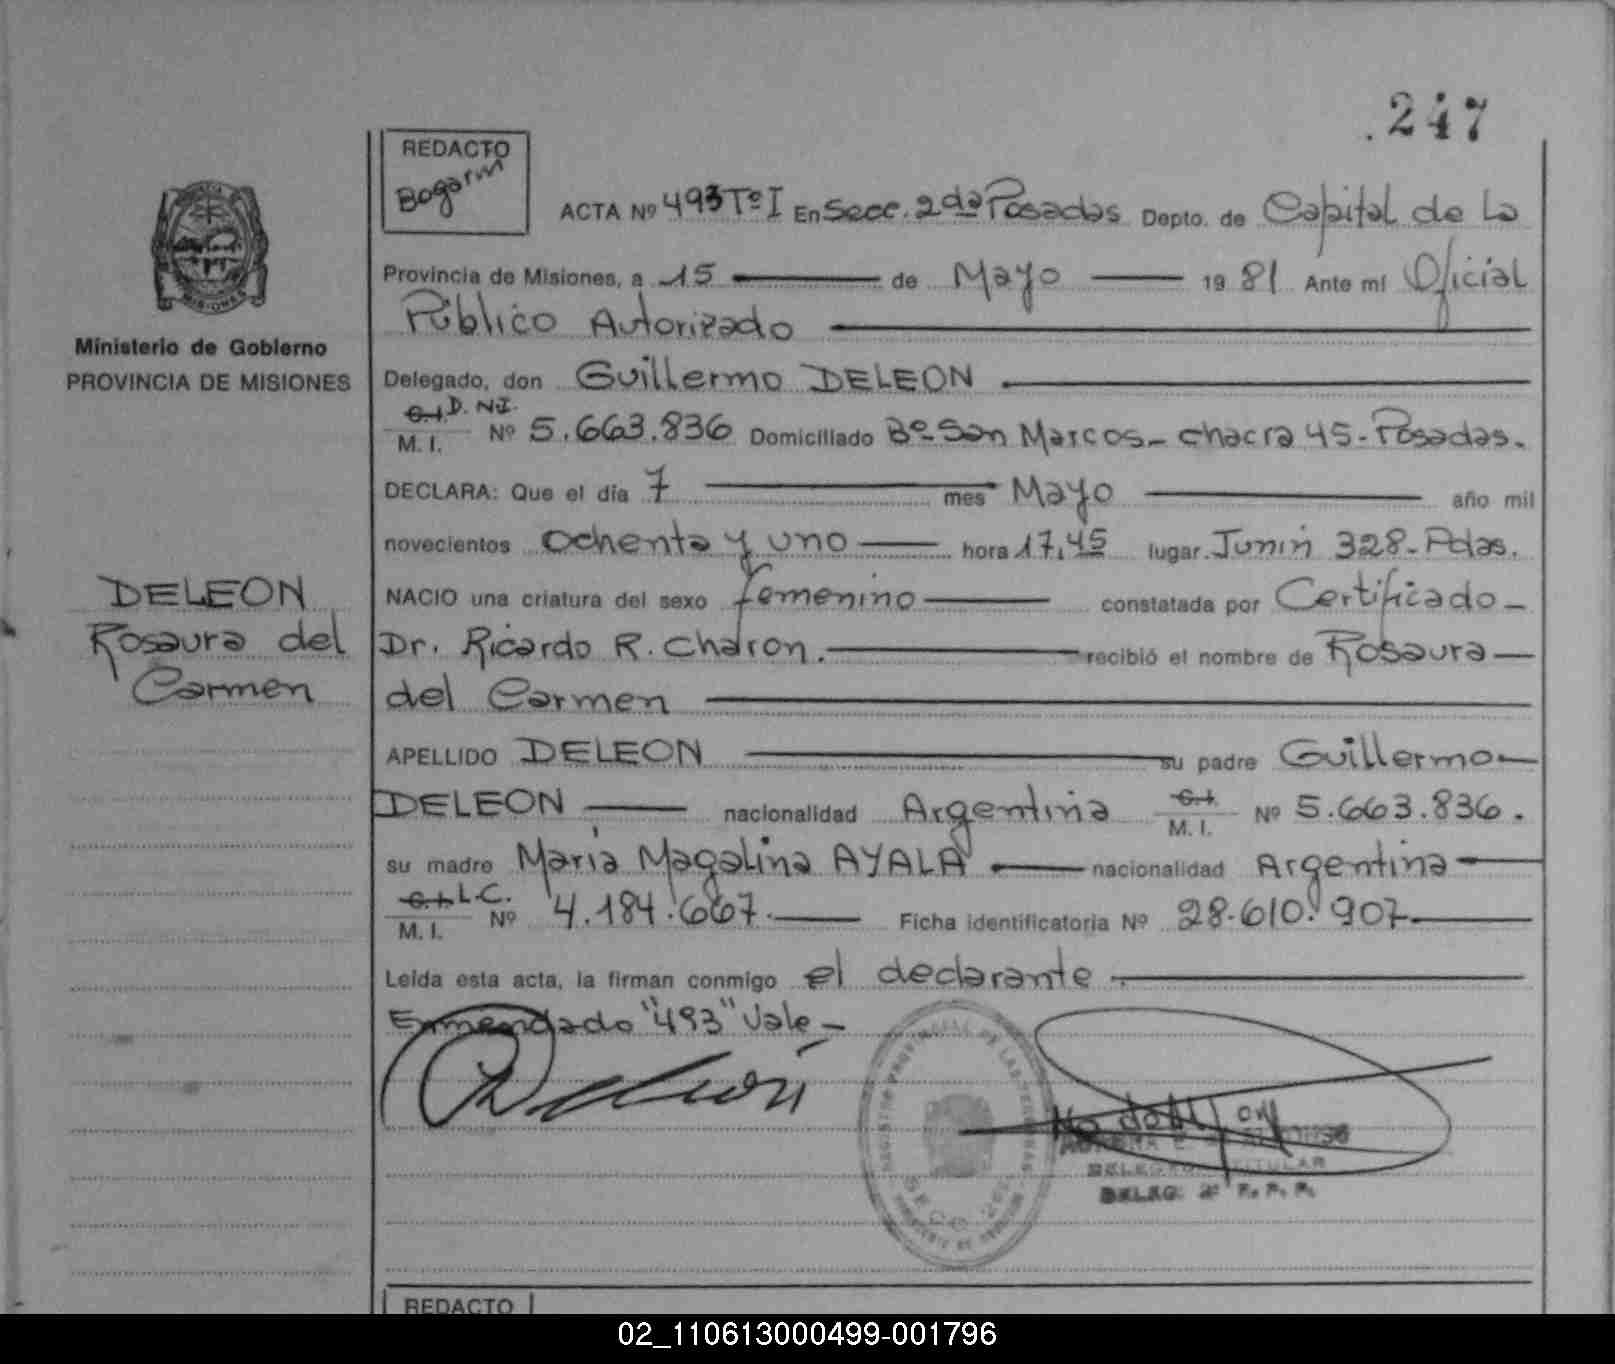 247
REDACTO
Bogarin
ACTA Nº 493 Tº I En Secc. 2da Posadas Depto. de Capital de La
Provincia de Misiones, a 15 de Mayo 1981 Ante mí Oficial
Público Autorizado
MISIONES
Ministerio de Gobierno
PROVINCIA DE MISIONES
Delegado, don Guillermo DELEON
C.I. D.N.I.
M. I. Nº 5.663.836 Domiciliado Bº San Marcos - chacra 45 - Posadas.
DECLARA: Que el día 7 mes Mayo año mil
novecientos ochenta y uno hora 17,45 lugar Junin 328 - Pdas.
DELEON
Rosaura del
Carmen
NACIO una criatura del sexo femenino constatada por Certificado -
Dr. Ricardo R. Charon. recibió el nombre de Rosaura
del Carmen
APELLIDO DELEON su padre Guillermo
DELEON nacionalidad Argentina C.I. M. I. Nº 5.663.836.
su madre María Magalina AYALA nacionalidad Argentina
C.I. L.C.
M. I. Nº 4.184.667. Ficha identificatoria Nº 28.610.907
Leída esta acta, la firman conmigo el declarante.
Enmendado "493" Vale -
Deleón
REGISTRO PROVINCIAL DE LAS PERSONAS
SECC. 2da
TITULAR
DELEG. 2ª R. P. P.
REDACTO
02_110613000499-001796